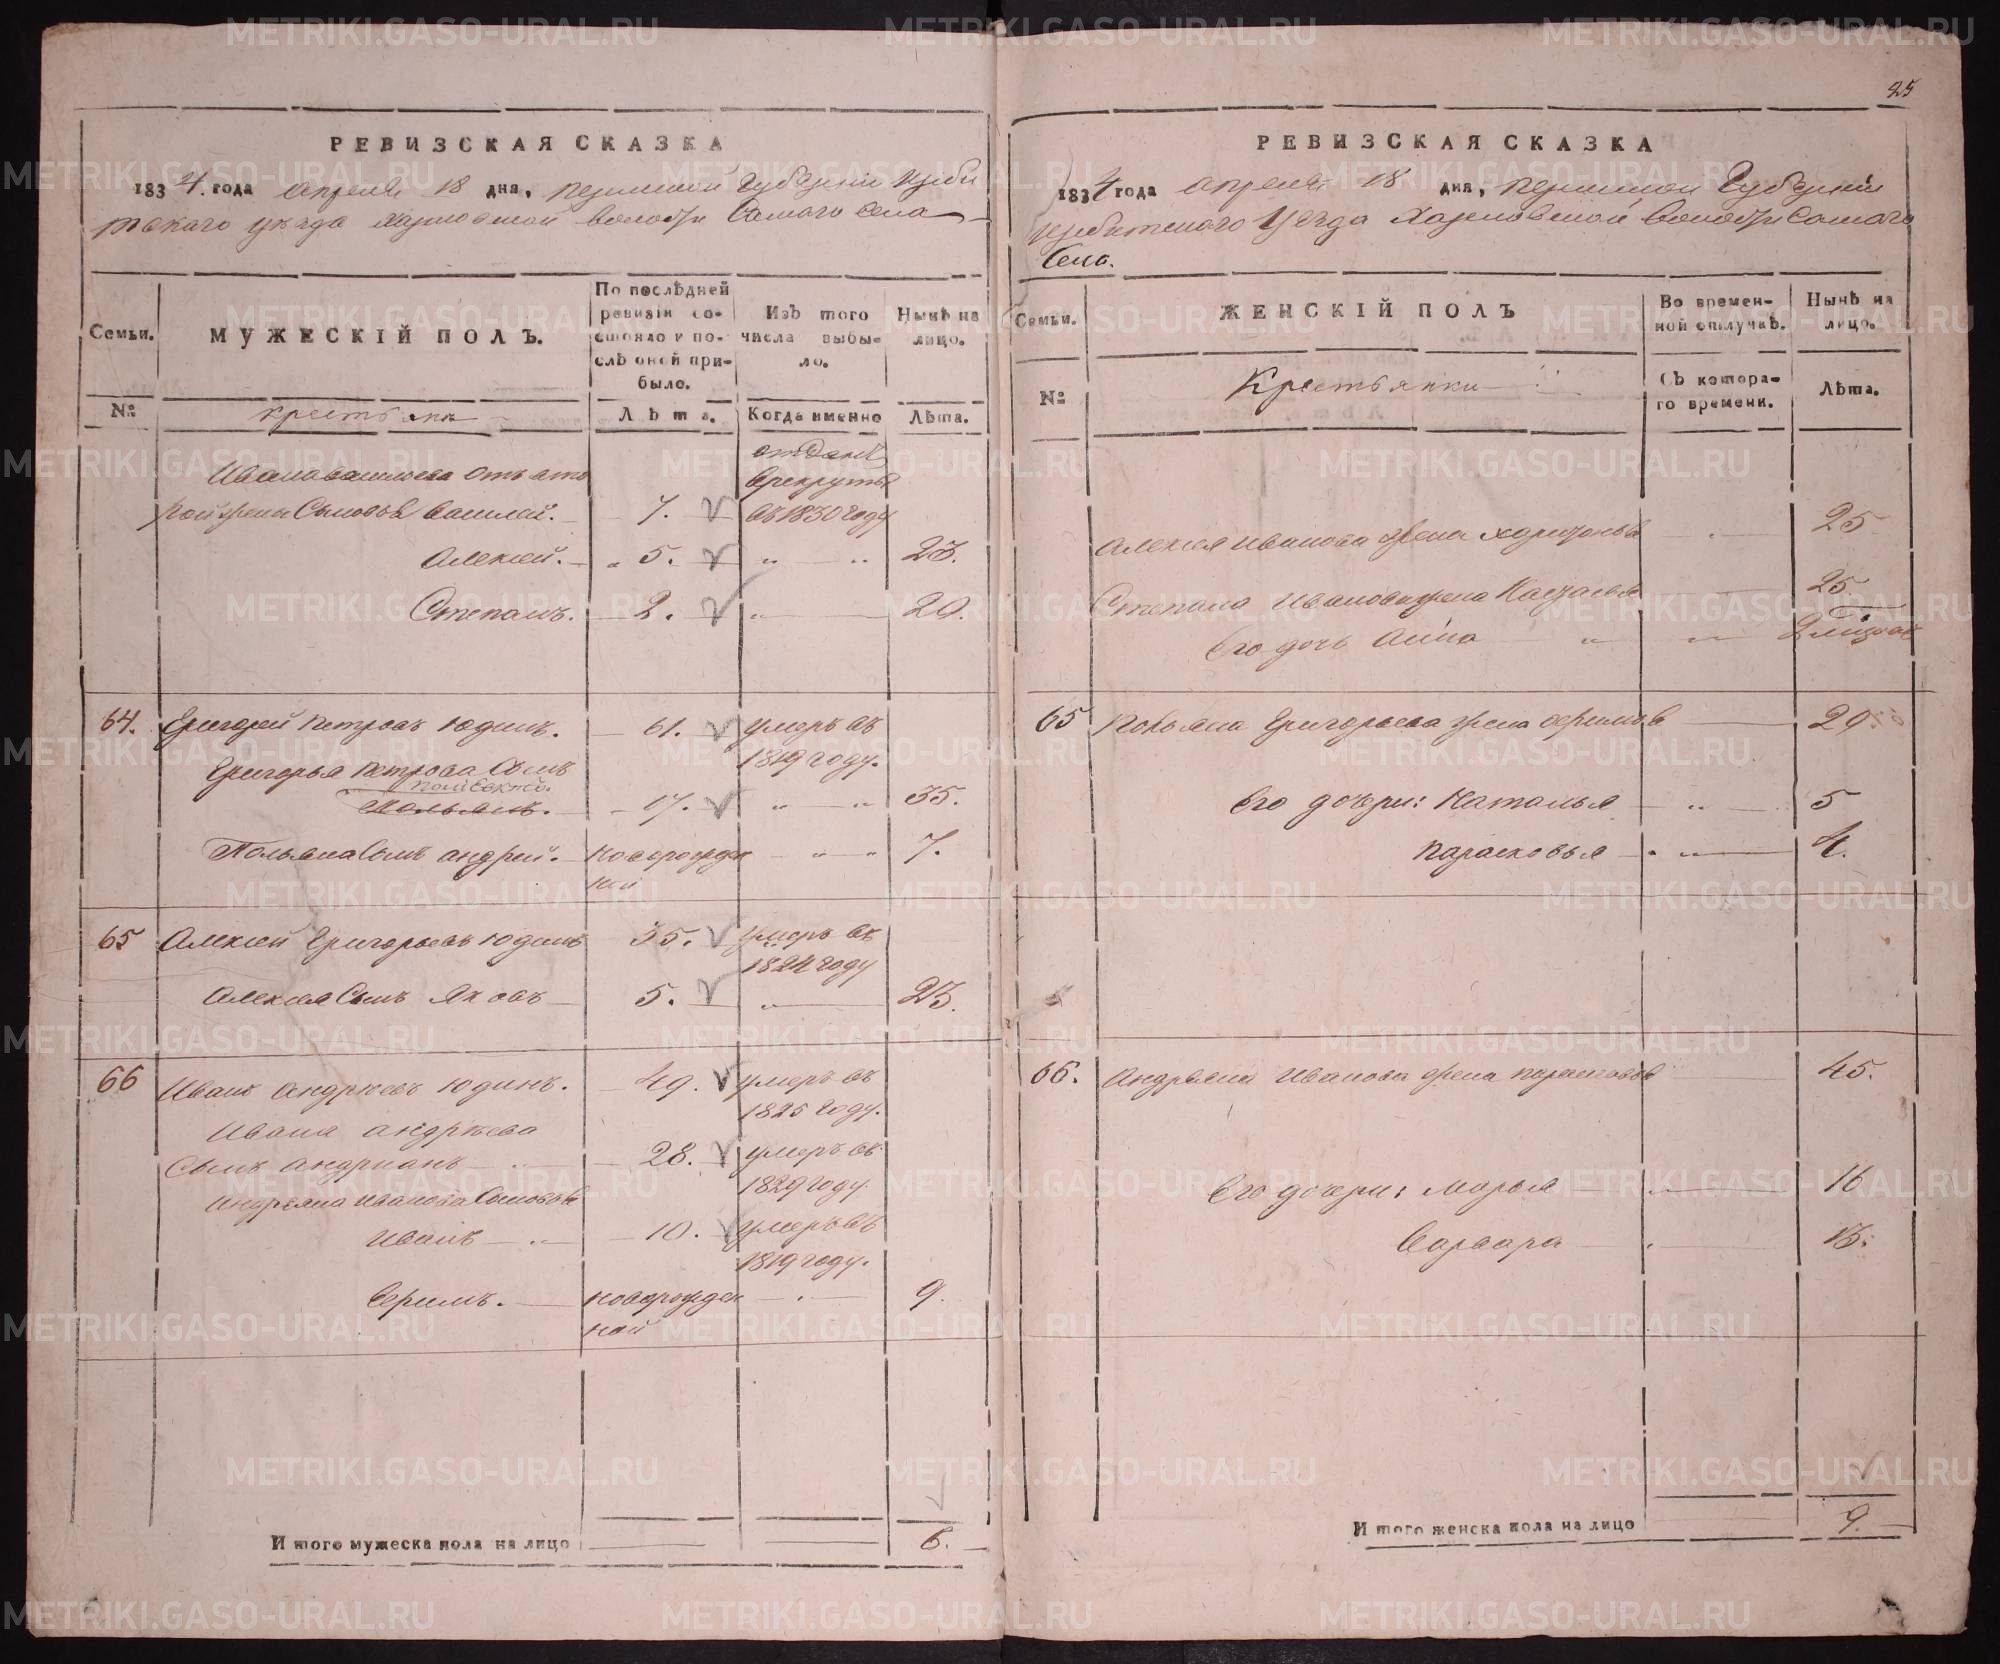 25
РЕВИЗСКАЯ СКАЗКА
1834. года апреля 18 дня, пермской губернии ирби
тскаго уѣзда харловской волости самаго села
Семьи.
МУЖЕСКІЙ ПОЛЪ.
По послѣдней
ревизіи со-
стояло и по-
слѣ оной при-
было.
Изъ того
числа выбы-
ло.
Нынѣ на
лицо.
№
крестьянъ
Лѣта.
Когда именно
Лѣта.
Ивана васильева отъ вто
рой жены Сыновья василей. 7. отданъ
врекруты
въ 1830 году
Алексей. 5. 23.
Степанъ. 2. 20.
64. Григорей Петровъ Юдинъ. 61. умеръ въ
1819 году.
Григорья петрова Сынъ
Польянъ. 17. 35.
Польяна Сынъ андрей. новорожден
ной 7.
65 Алексей Григорьевъ Юдинъ 35. умеръ въ
1824 году
Алексея Сынъ Яковъ 5. 23.
66 Иванъ Андреевъ Юдинъ. 49. умеръ въ
1825 году.
Ивана андреева
Сынъ андриянъ 28. умеръ въ
1829 году.
Андреяна Иванова Сыновья
Иванъ 10. умеръ въ
1819 году.
новорожден
ной 9.
Итого мужеска пола на лицо 6.
РЕВИЗСКАЯ СКАЗКА
1834 года апреля 18 дня, пермской Губерніи
ирбитскаго Уѣзда Харловской волости Самаго
Села.
Семьи.
ЖЕНСКІЙ ПОЛЪ
Во времен-
ной отлучкѣ.
Нынѣ на
лицо.
№
Крестьянки
Съ котора-
го времени.
Лѣта.
Алексея Иванова жена 25
Степана Иванова жена Настасья 25.
Его дочь Анна
65 Польяна Григорьева жена 29.
Его дочери: Наталья 5
Парасковья 4.
66. Андреяна Иванова жена парасковья 45.
Его дочери: Марья 16
Варвара 13.
Итого женска пола на лицо 9.
METRIKI.GASO-URAL.RU